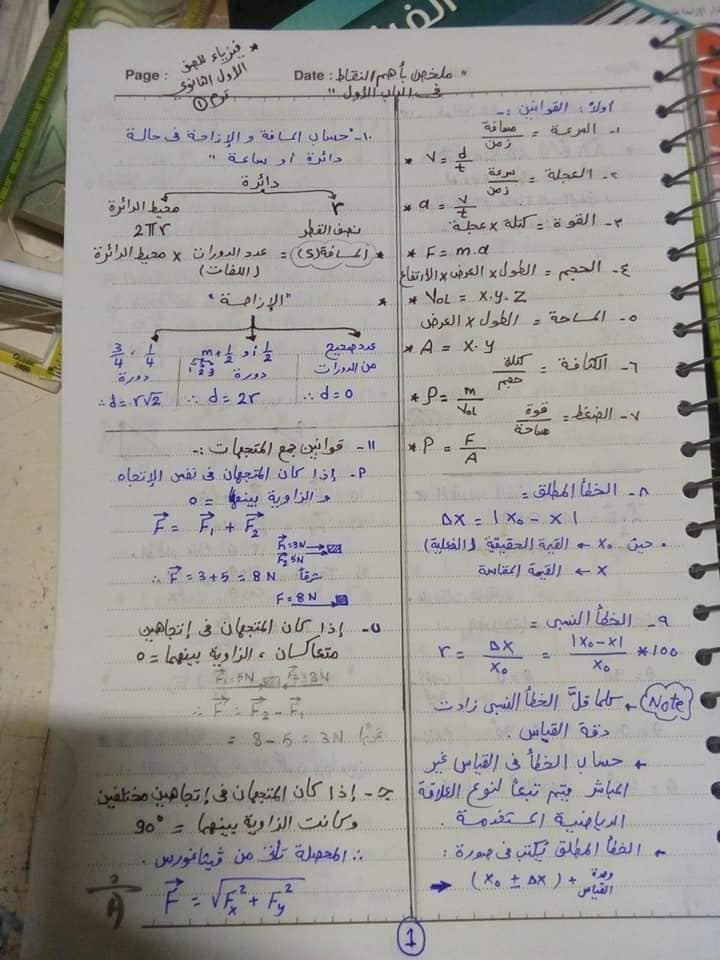 Page :
* فيزياء للصف
الأول الثانوي
ترم ①
Date :
" ملخص بأهم النقاط
فى الباب الأول "
أولاً : القوانين :-
١- السرعة = مسافة / زمن
* v = d/t
٢- العجلة = سرعة / زمن
* a = v/t
٣- القوة = كتلة × عجلة
* F = m.a
٤- الحجم = الطول × العرض × الارتفاع
* VOL = X.y.Z
٥- المساحة = الطول × العرض
* A = X.y
٦- الكثافة = كتلة / حجم
* ρ = m/VOL
٧- الضغط = قوة / مساحة
* P = F/A
٨- الخطأ المطلق =
ΔX = |X₀ - X|
• حيث X₀ ← القيمة الحقيقة (الفعلية)
X ← القيمة المقاسة
٩- الخطأ النسبى =
r = ΔX/X₀ = |X₀-X|/X₀ *100
Note ← كلما قلَّ الخطأ النسبى زادت
دقة القياس .
← حساب الخطأ فى القياس غير
المباشر يتم تبعاً لنوع العلاقة
الرياضية المستخدمة .
← الخطأ المطلق يُكتب فى صورة :
(X₀ ± ΔX) + وحدة القياس
١٠- " حساب المسافة و الإزاحة فى حالة
دائرة أو ساعة "
دائرة
r
نصف القطر
محيط الدائرة
2πr
* المسافة (S) = عدد الدورات × محيط الدائرة
(اللفات)
* " الإزاحة "
عدد صحيح
من الدورات
∴ d = 0
1/2 أو m+1/2
1 2 3
دورة
∴ d = 2r
1/4 ، 3/4
دورة
∴ d = r√2
١١- قوانين جمع المتجهات :-
P- إذا كان المتجهان فى نفس الإتجاه
و الزاوية بينهما = 0
F = F₁ + F₂
F₁=3N
F₂ 5N
∴ F = 3+5 = 8N شرقاً
F=8N
ب- إذا كان المتجهان فى إتجاهين
متعاكسان ، الزاوية بينهما = 0
F₁=5N F₂=8N
∴ F = F₂ - F₁
= 8-5 = 3N
ج- إذا كان المتجهان فى إتجاهين مختلفين
وكانت الزاوية بينهما = 90°
∴ المحصلة تأتى من فيثاغورس .
F = √Fx² + Fy²
1